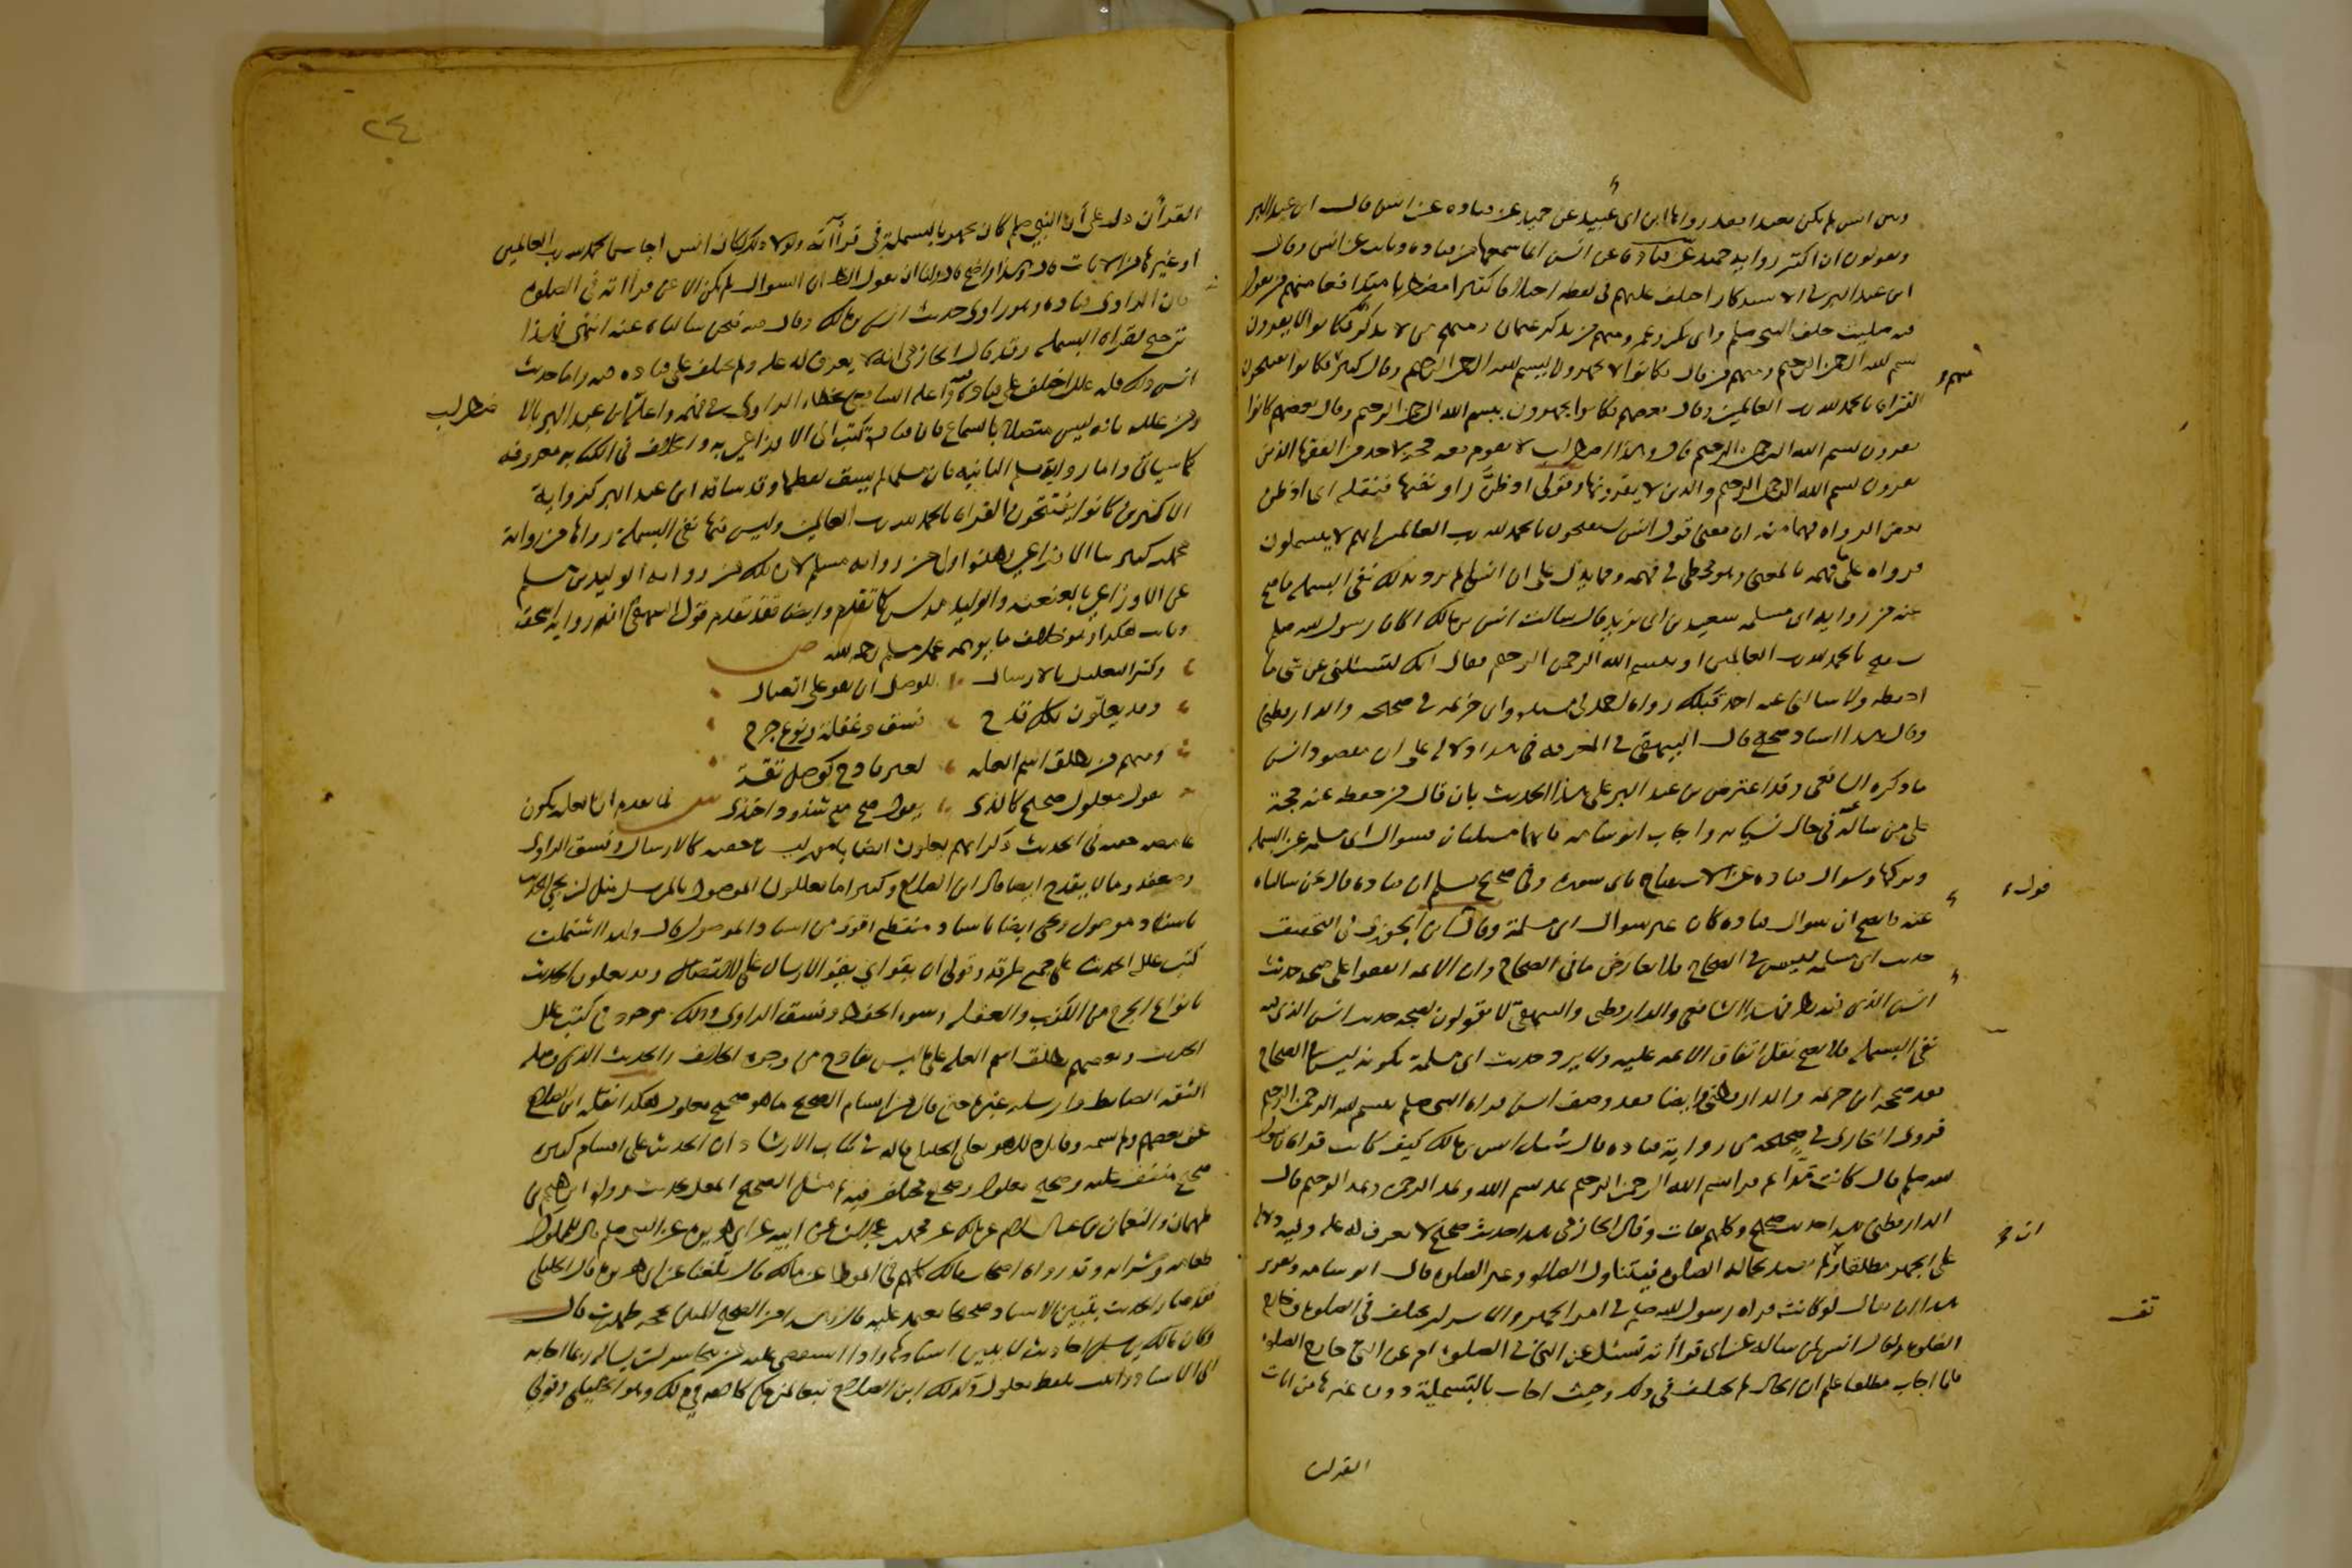 وبين انس لم يكن بعيدا بعد رواها ابن ابى عبيد عن حميد عن قتاده عن انس قال ابن عبد البر
ويقولون ان اكثر رواية حميد عن قتادة عن انس انما سمعها من قتاده وثابت عن انس وقال
ابن عبد البر فى الاستذكار اختلف عليهم فى لفظه اختلافا كثيرا مضطربا متدافعا منهم من يقول
فيه صليت خلف النبى صلعم وابى بكر وعمر ومنهم من يذكر عثمان ومنهم من لا يذكر فكانوا لا يقرون
بسم الله الرحمن الرحيم ومنهم من قال فكانوا لا يجهرون ببسم الله الرحمن الرحيم وقال كثير فكانوا يفتتحون
القراة بالحمد لله رب العالمين وقال بعضهم فكانوا يجهرون ببسم الله الرحمن الرحيم وقال بعضهم كانوا
يقرون بسم الله الرحمن الرحيم قال وهذا اضطراب لا يقوم معه حجة لاحد من الفقها الذين
يقرون بسم الله الرحمن الرحيم والذين لا يقرونها وقولى اوظن راو نفيها فنقله اى اوظن
بعض الرواه فهما منه ان معنى قول انس يستفتحون بالحمد لله رب العالمين انهم لا يبسملون
فرواه على فهمه بالمعنى وهو مخطى فى فهمه ومما يدل على ان انسا لم يرد بذلك نفى البسملة ما صح
عنه من رواية ابى مسلمه سعيد بن ابى يزيد قال سالت انس بن مالك اكان رسول الله صلعم
يستفتح بالحمد لله رب العالمين او ببسم الله الرحمن الرحيم فقال انك لتسئلنى عن شى ما
احفظه وما سالنى عنه احد قبلك رواه احمد فى مسنده وابن خزيمه فى صحيحه والدارقطنى
وقال هذا اسناد صحيح قال البيهقى فى المعرفه فى هذا دلاله على ان مقصود انس
ما ذكره الشافعى وقد اعترض ابن عبد البر على هذا الحديث بان قال من حفظه عنه حجة
على من ساله فى حال نسيانه واجاب ابو شامه بانهما مسئلتان فسوال ابى مسلمه عن البسمله
وتركها وسوال قتاده عن الاستفتاح باى سورة وفى صحيح مسلم ان قتاده قال نحن سالناه
قوله
عنه فاتضح ان سوال قتاده كان غير سوال ابى مسلمة وقال ابن الجوزى فى التحقيق
حديث ابى مسلمه ليس فى الصحاح فلا يعارض ما فى الصحاح وان الائمه اتفقوا على صحه حديث
انس الذى فيه نظر فهذا الشافعى والدارقطنى والبيهقى لا يقولون بصحه حديث انس الذى فيه
نفى البسمله فلا يصح نقل اتفاق الائمه عليه ولا يرد حديث ابى مسلمة بكونه ليس فى الصحاح
فقد صححه ابن خزيمه والدارقطنى وايضا فقد وصف انس قراة النبى صلعم ببسم الله الرحمن الرحيم
فروى البخارى فى صحيحه من رواية قتاده قال سئل انس بن مالك كيف كانت قراة رسول
الله صلعم قال كانت مدا ثم قرا بسم الله الرحمن الرحيم يمد بسم الله ويمد الرحمن ويمد الرحيم قال
الدارقطنى هذا حديث صحيح وكلهم ثقات وقال الحازمى هذا حديث صحيح لا يعرف له عله وفيه دلالة
على الجهر مطلقا وان لم يقيد بحاله الصلوه فيتناول الصلوه وغير الصلوه قال ابو شامه وتقرير
هذا ان يقال لو كانت قراة رسول الله صلعم فى امر الجهر والاسرار تختلف فى الصلوة وخارج
الصلوة لقال انس لمن ساله عن اى قراأته تسئل عن التى فى الصلوة ام عن التى خارج الصلوة
فلما اجاب مطلقا علم ان الحال لم يختلف فى ذلك وحيث اجاب بالتسملة دون غيرها من ايات
القران
٢٤
القرأن دل على أن النبى صلعم كان يجهر بالبسملة فى قراأته ولولا ذلك لكان انس اجاب بالحمد لله رب العالمين
او غيرها من الايات قال وهذا واضح قال ولنا ان نقول الظاهر ان السوال لم يكن الا عن قراأته فى الصلوة
فان الراوى قتاده وهو راوى حديث انس بن مالك وقال فيه نحن سالناه عنه انتهى فهذا
ترجيح لقراة البسمله وقد قال الحازمى انه لا يعرف له عله ولم يختلف على قتاده فيه واما حديث
انس ذاك فله علل اختلف على قتادة واعله الشافعى بخطاء الراوى فى فهمه واعله ابن عبد البر بالا
ضطراب
ومن علله بانه ليس متصلا بالسماع فان قتادة كتب الى الاوزاعى به والخلاف فى الكتابه معروفه
كما سياتى واما رواية مسلم الثانيه فان مسلما لم يسق لفظها وقد ساقه ابن عبد البر كرواية
الاكثرين كانوا يفتتحون القراة بالحمد لله رب العالمين وليس فيها نفى البسملة رواها من رواية
محمد بن كثير ثنا الاوزاعى وهذا اولى من رواية مسلم لان تلك من رواية الوليد بن مسلم
عن الاوزاعى بالعنعنة والوليد مدلس كما تقدم وايضا فقد تقدم قول البيهقى ان رواية اسحق
وثابت هكذا وهو خلاف ما يوهمه عمل مسلم رحمه الله ص
وكثر التعليل بالارسال للوصل ان يقو على اتصال
وقد يعلّون بكل قدح فسق وغفلة ونوع جرح
ومنهم من يطلق اسم العله لغير قادح كوصل ثقة
يقول معلول صحيح كالذى يقول صح مع شذوذ احتذى ش لما تقدم ان العله تكون
غامضه خفيه فى الحديث ذكر انهم يعلون ايضا بامور ليست خفيه كالارسال وفسق الراوى
وضعفه وما لا يقدح ايضا قال ابن الصلاح وكثيرا ما يعللون الموصول بالمرسل مثل ان يجى الحديث
باسناد موصول ويجى ايضا باسناد منقطع اقوى من اسناد الموصول قال ولهذا اشتملت
كتب علل الحديث على جمع طرقه وقولى ان يقو اى يقو الارسال على الاتصال وقد يعلون الحديث
بانواع الجرح من الكذب والغفله وسوء الحفظ وفسق الراوى وذلك موجود فى كتب علل
الحديث وبعضهم يطلق اسم العله على ما ليس بقادح من وجوه الخلاف كالحديث الذى وصله
الثقه الضابط وارسله غيره حتى قال من اقسام الصحيح ما هو صحيح معلول هكذا نقله ابن الصلاح
عن بعضهم ولم يسمه وقائل ذلك هو ابو يعلى الخليلى قاله فى كتاب الارشاد ان الحديث على اقسام كثيره
صحيح متفق عليه وصحيح معلول وصحيح مختلف فيه ثم مثل الصحيح المعلل بحديث رواه ابراهيم بن
طهمان والنعمان بن عبد السلام عن مالك عن محمد بن عجلان عن ابيه عن ابى هريره عن النبى صلعم قال للمملوك
طعامه وشرابه وقد رواه اصحاب مالك كلهم فى الموطا عن مالك قال بلغنا عن ابى هريره قال الخليلى
فقد صار الحديث بتبيين الاسناد صحيحا يعتمد عليه قال وهذا من الصحيح المبين بحجه ظهرت قال
وكان مالك يرسل احاديث لا يبين اسنادها واذا استقصى عليه من يتجاسر ان يساله ربما اجابه
الى الاسناد وانما بلفظ معلول وكذلك ابن الصلاح تبعا لمن حكى كلامه فى ذلك وهو الخليلى وقولى